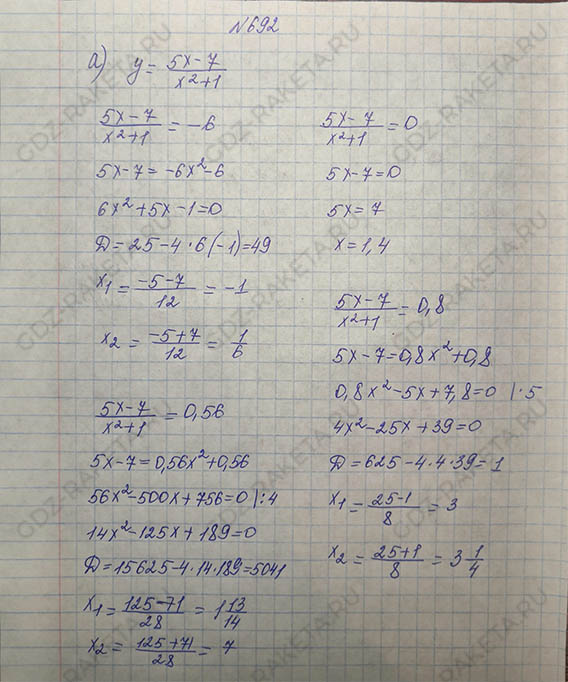 №692
а) y = (5x-7)/(x²+1)
(5x-7)/(x²+1) = -6
5x-7 = -6x²-6
6x²+5x-1=0
Д = 25-4·6(-1)=49
x₁ = (-5-7)/12 = -1
x₂ = (-5+7)/12 = 1/6
(5x-7)/(x²+1) = 0,56
5x-7=0,56x²+0,56
56x²-500x+756=0 |:4
14x²-125x+189=0
Д=15625-4·14·189=5041
x₁ = (125-71)/28 = 1 13/14
x₂ = (125+71)/28 = 7
(5x-7)/(x²+1) = 0
5x-7=0
5x=7
x=1,4
(5x-7)/(x²+1) = 0,8
5x-7=0,8x²+0,8
0,8x²-5x+7,8=0 |·5
4x²-25x+39=0
Д=625-4·4·39=1
x₁ = (25-1)/8 = 3
x₂ = (25+1)/8 = 3 1/4
GDZ-RAKETA.RU